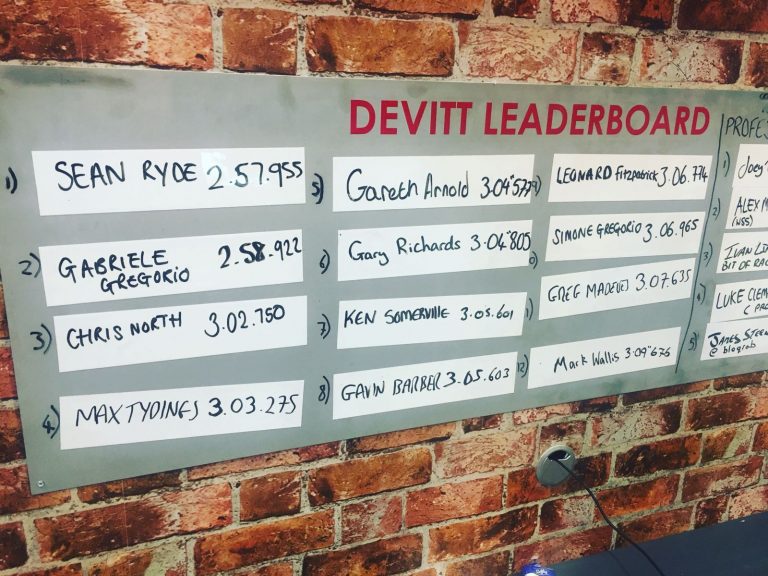 DEVITT LEADERBOARD
1) SEAN RYDE 2.57.955
2) GABRIELE GREGORIO 2.58.922
3) CHRIS NORTH 3.02.750
4) MAX TYDINES 3.03.275
5) Gareth Arnold
6) Gary Richards 3.04"805
7) KEN SOMERVILLE 3.05.601
8) GAVIN BARBER 3.05.603
9) LEONARD Fitzpatrick 3.06.774
SIMONE GREGORIO 3.06.965
GREG 3.07.635
12) Mark Wallis 3.09"676
1) Joey
2) ALEX
(WSS)
3)
BIT OF
4) LUKE
5) JAMES